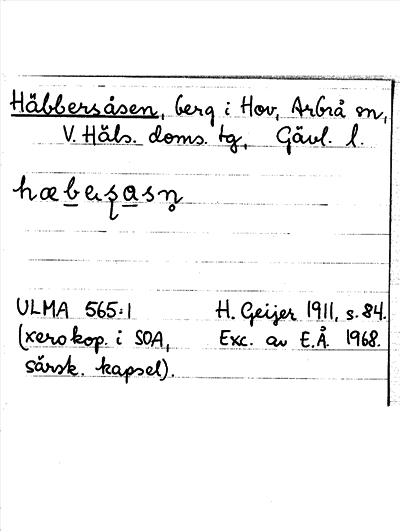 Häbbersåsen, berg i Hov, Arbrå sn,
V. Häls. doms. tg, Gävl. l.
ULMA 565:1 H. Geijer 1911, s. 84.
(xerokop. i SOA, Exc. av E.Å. 1968.
särsk. kapsel).